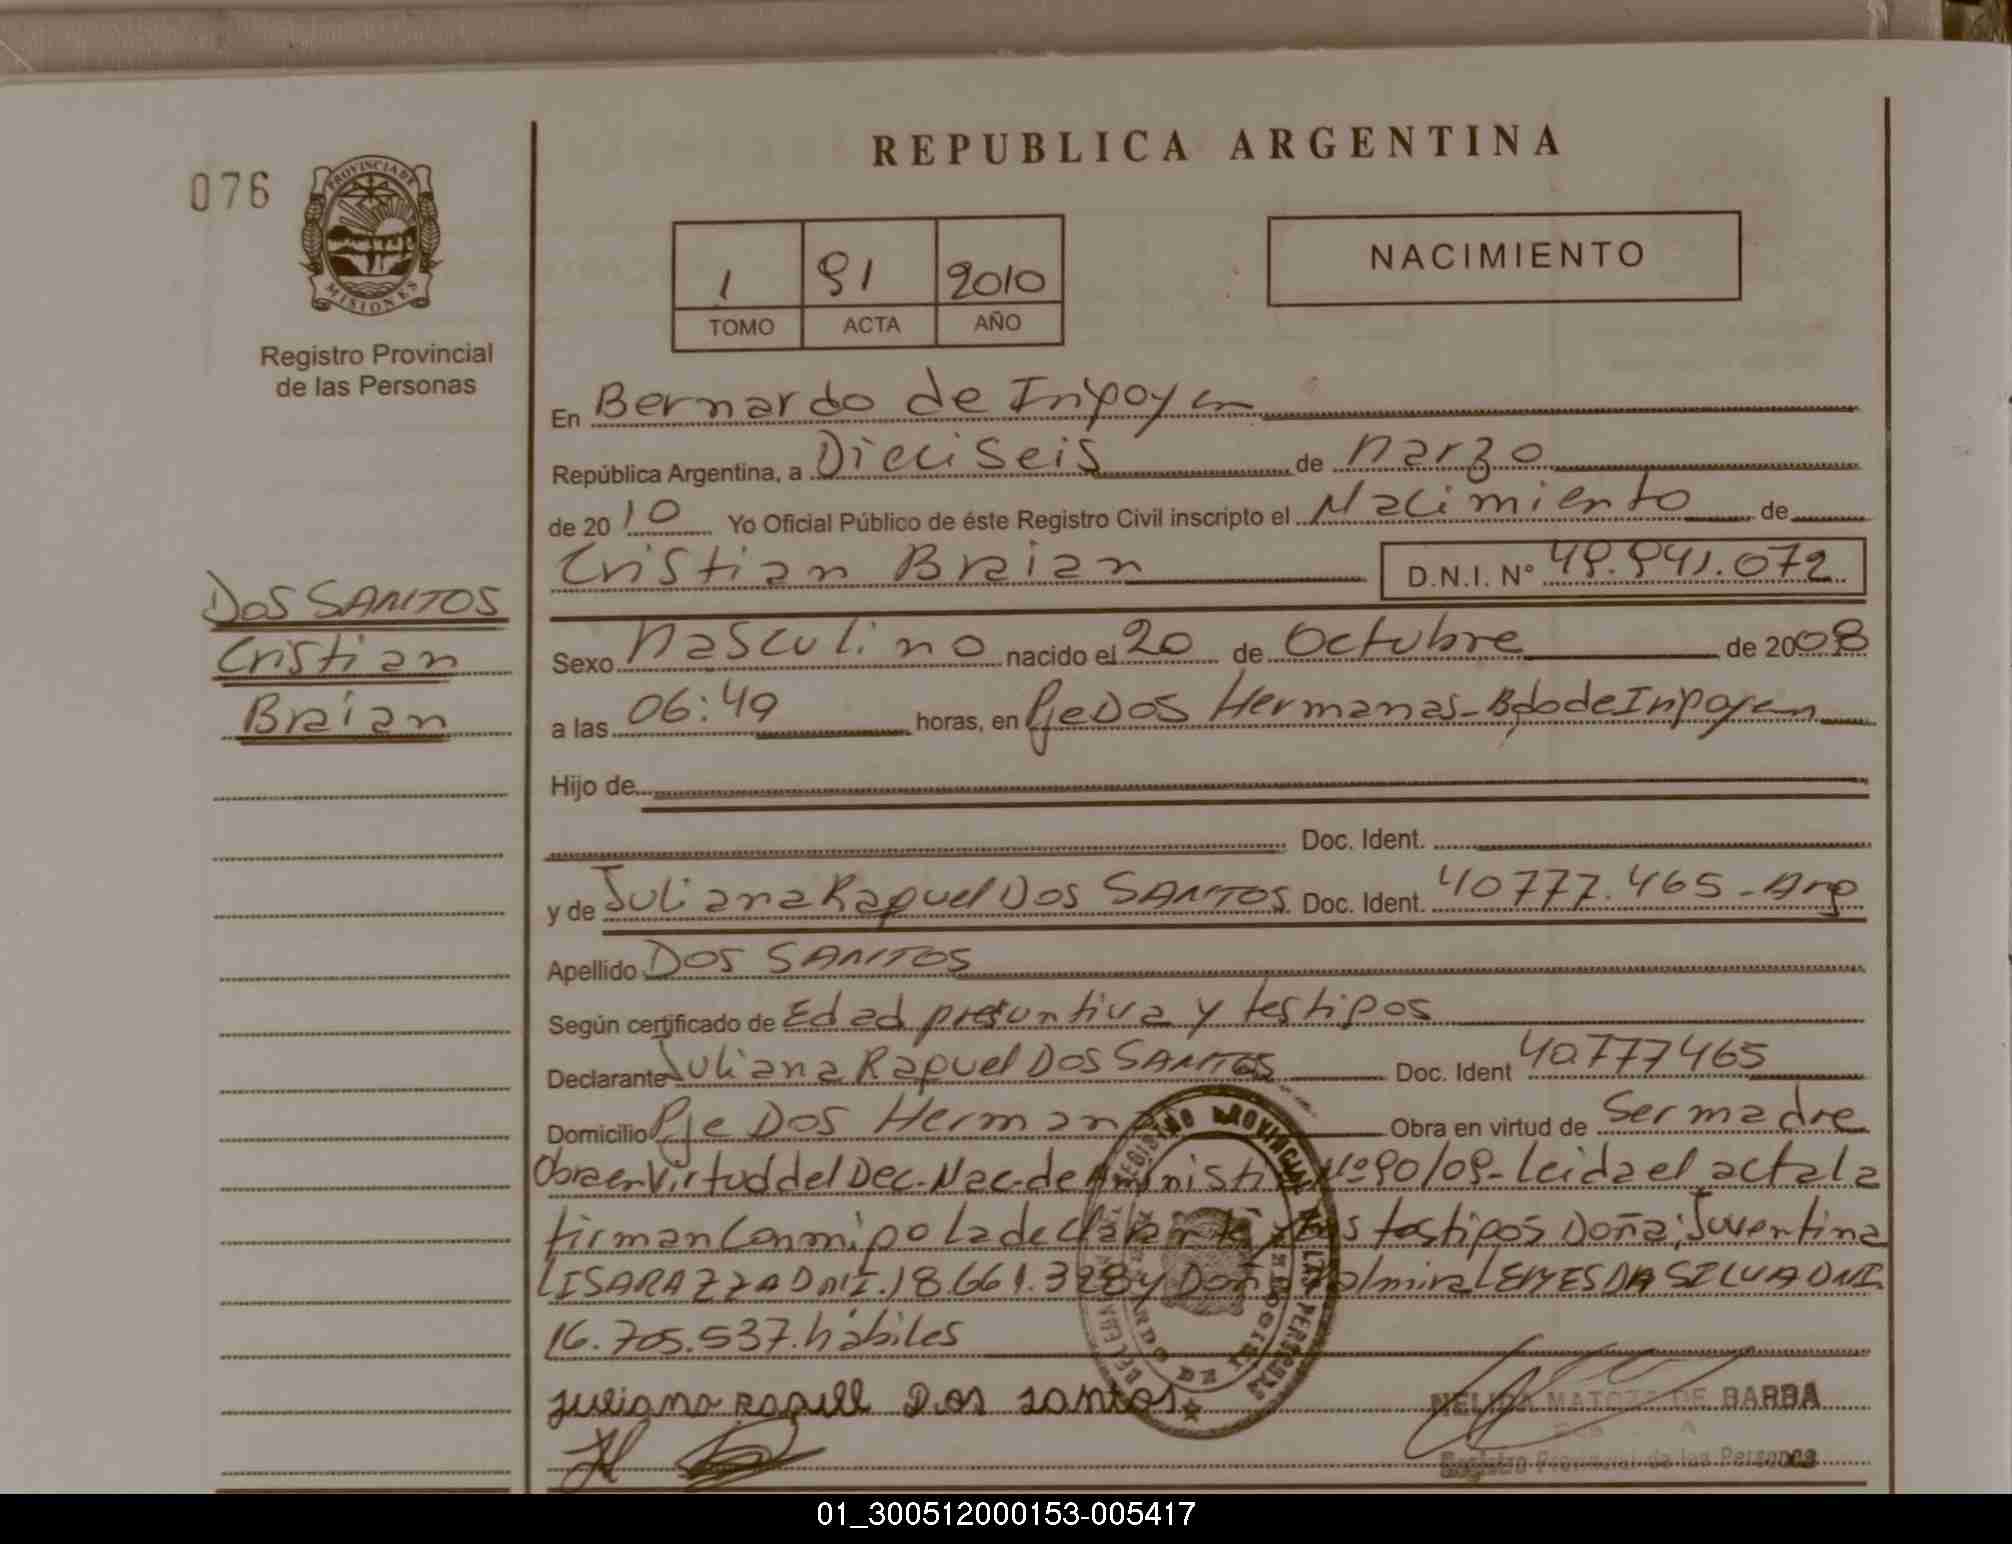 REPUBLICA ARGENTINA
076
PROVINCIA DE
MISIONES
Registro Provincial
de las Personas
1 91 2010
TOMO ACTA AÑO
NACIMIENTO
En Bernardo de Irigoyen
República Argentina, a Dieciseis de Marzo
de 2010 Yo Oficial Público de éste Registro Civil inscripto el Nacimiento de
Cristian Braian D.N.I. Nº 49.941.072
DOS SANTOS
Cristian
Braian
Sexo Masculino nacido el 20 de Octubre de 2008
a las 06:49 horas, en Pje Dos Hermanas-Bdo de Irigoyen
Hijo de
Doc. Ident.
y de Juliana Raquel DOS SANTOS Doc. Ident. 40777.465-Arg
Apellido DOS SANTOS
Según certificado de Edad presuntiva y testigos
Declarante Juliana Raquel DOS SANTOS Doc. Ident 40.777465
Domicilio Pje Dos Herman Obra en virtud de Ser madre
Obra en Virtud del Dec. Nac. de Nº 90/09-Leida el acta la
firman Conmigo La declarante testigos Doña; Juventina
LISARAZZA DNI. 18.661.328 y Doña Almira LEMES DA SILVA DNI.
16.705.537. hábiles
juliana raquell Dos santos
NELIDA MATOZO DE BARBA
Registro Provincial de las Personas
01_300512000153-005417